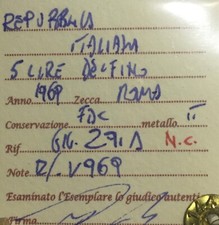 REPUBBLICA
ITALIANA
5 LIRE DELFINO
Anno 1969 Zecca ROMA
Conservazione FDC metallo IT
Rif. GIG. 291A N.C.
Note R/. V969
Esaminato l'Esemplare lo giudico autenti
Firma